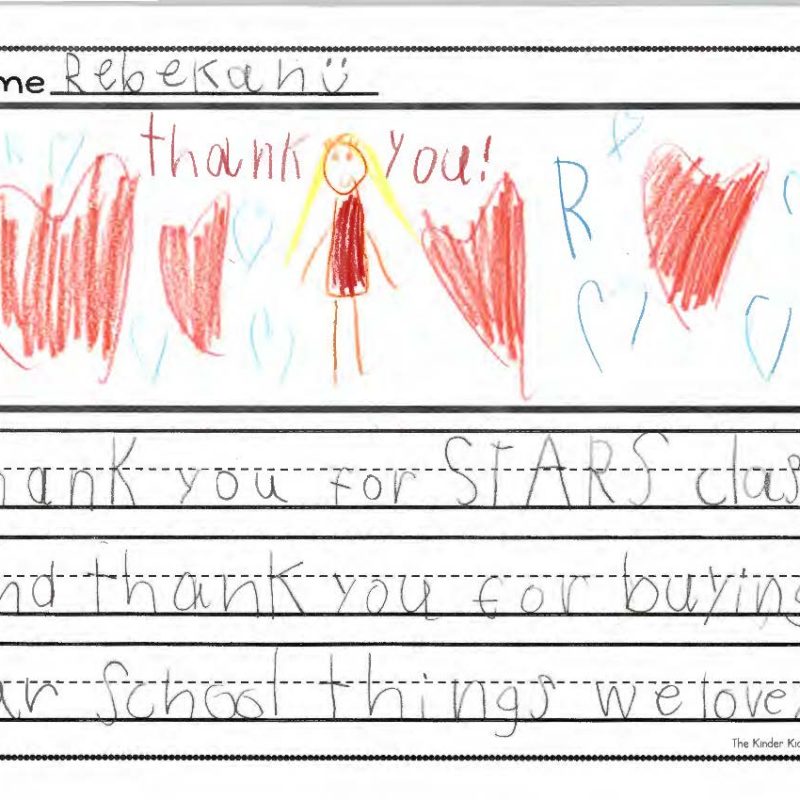 me Rebekah
thank you!
R
hank you for STARS clas
nd thank you for buying
ur school things we love
The Kinder Ki